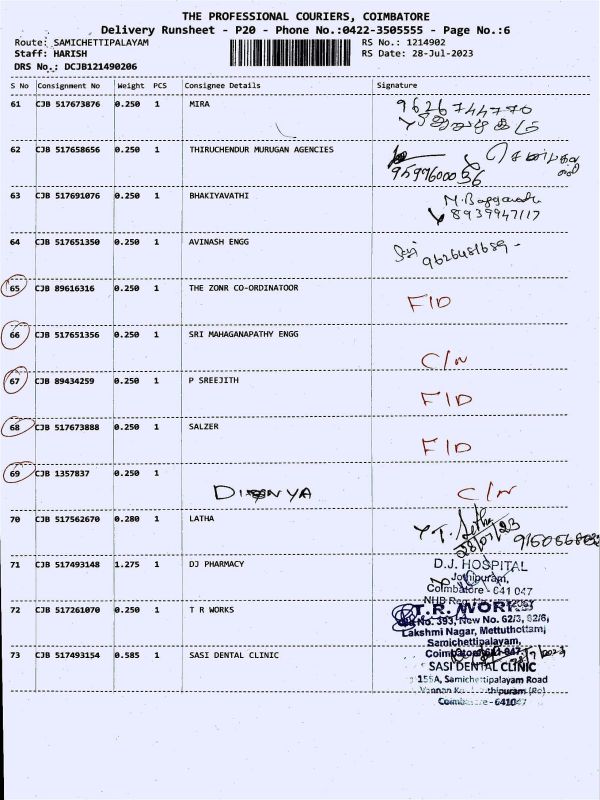 THE PROFESSIONAL COURIERS, COIMBATORE
Delivery Runsheet - P20 - Phone No.:0422-3505555 - Page No.:6
Route: SAMICHETTIPALAYAM RS No.: 1214902
Staff: HARISH RS Date: 28-Jul-2023
DRS No.: DCJB121490206
S No Consignment No Weight PCS Consignee Details Signature
61 CJB 517673876 0.250 1 MIRA 9626744770
62 CJB 517658656 0.250 1 THIRUCHENDUR MURUGAN AGENCIES
63 CJB 517691076 0.250 1 BHAKIYAVATHI
8939947117
64 CJB 517651350 0.250 1 AVINASH ENGG
9626481689
65 CJB 89616316 0.250 1 THE ZONR CO-ORDINATOOR
F/D
66 CJB 517651356 0.250 1 SRI MAHAGANAPATHY ENGG
C/N
67 CJB 89434259 0.250 1 P SREEJITH
F/D
68 CJB 517673888 0.250 1 SALZER
F/D
69 CJB 1357837 0.250 1
C/N
70 CJB 517562670 0.280 1 LATHA
28/07/23
71 CJB 517493148 1.275 1 DJ PHARMACY D.J. HOSPITAL
Jothipuram,
Coimbatore - 641 047
72 CJB 517261070 0.250 1 T R WORKS T.R. WORKS
No. 393, New No. 62/3, 62/6,
Lakshmi Nagar, Mettuthottam,
Samichettipalayam,
Coimbatore-641 047
73 CJB 517493154 0.585 1 SASI DENTAL CLINIC SASI DENTAL CLINIC
155A, Samichettipalayam Road
Coimbatore - 641047